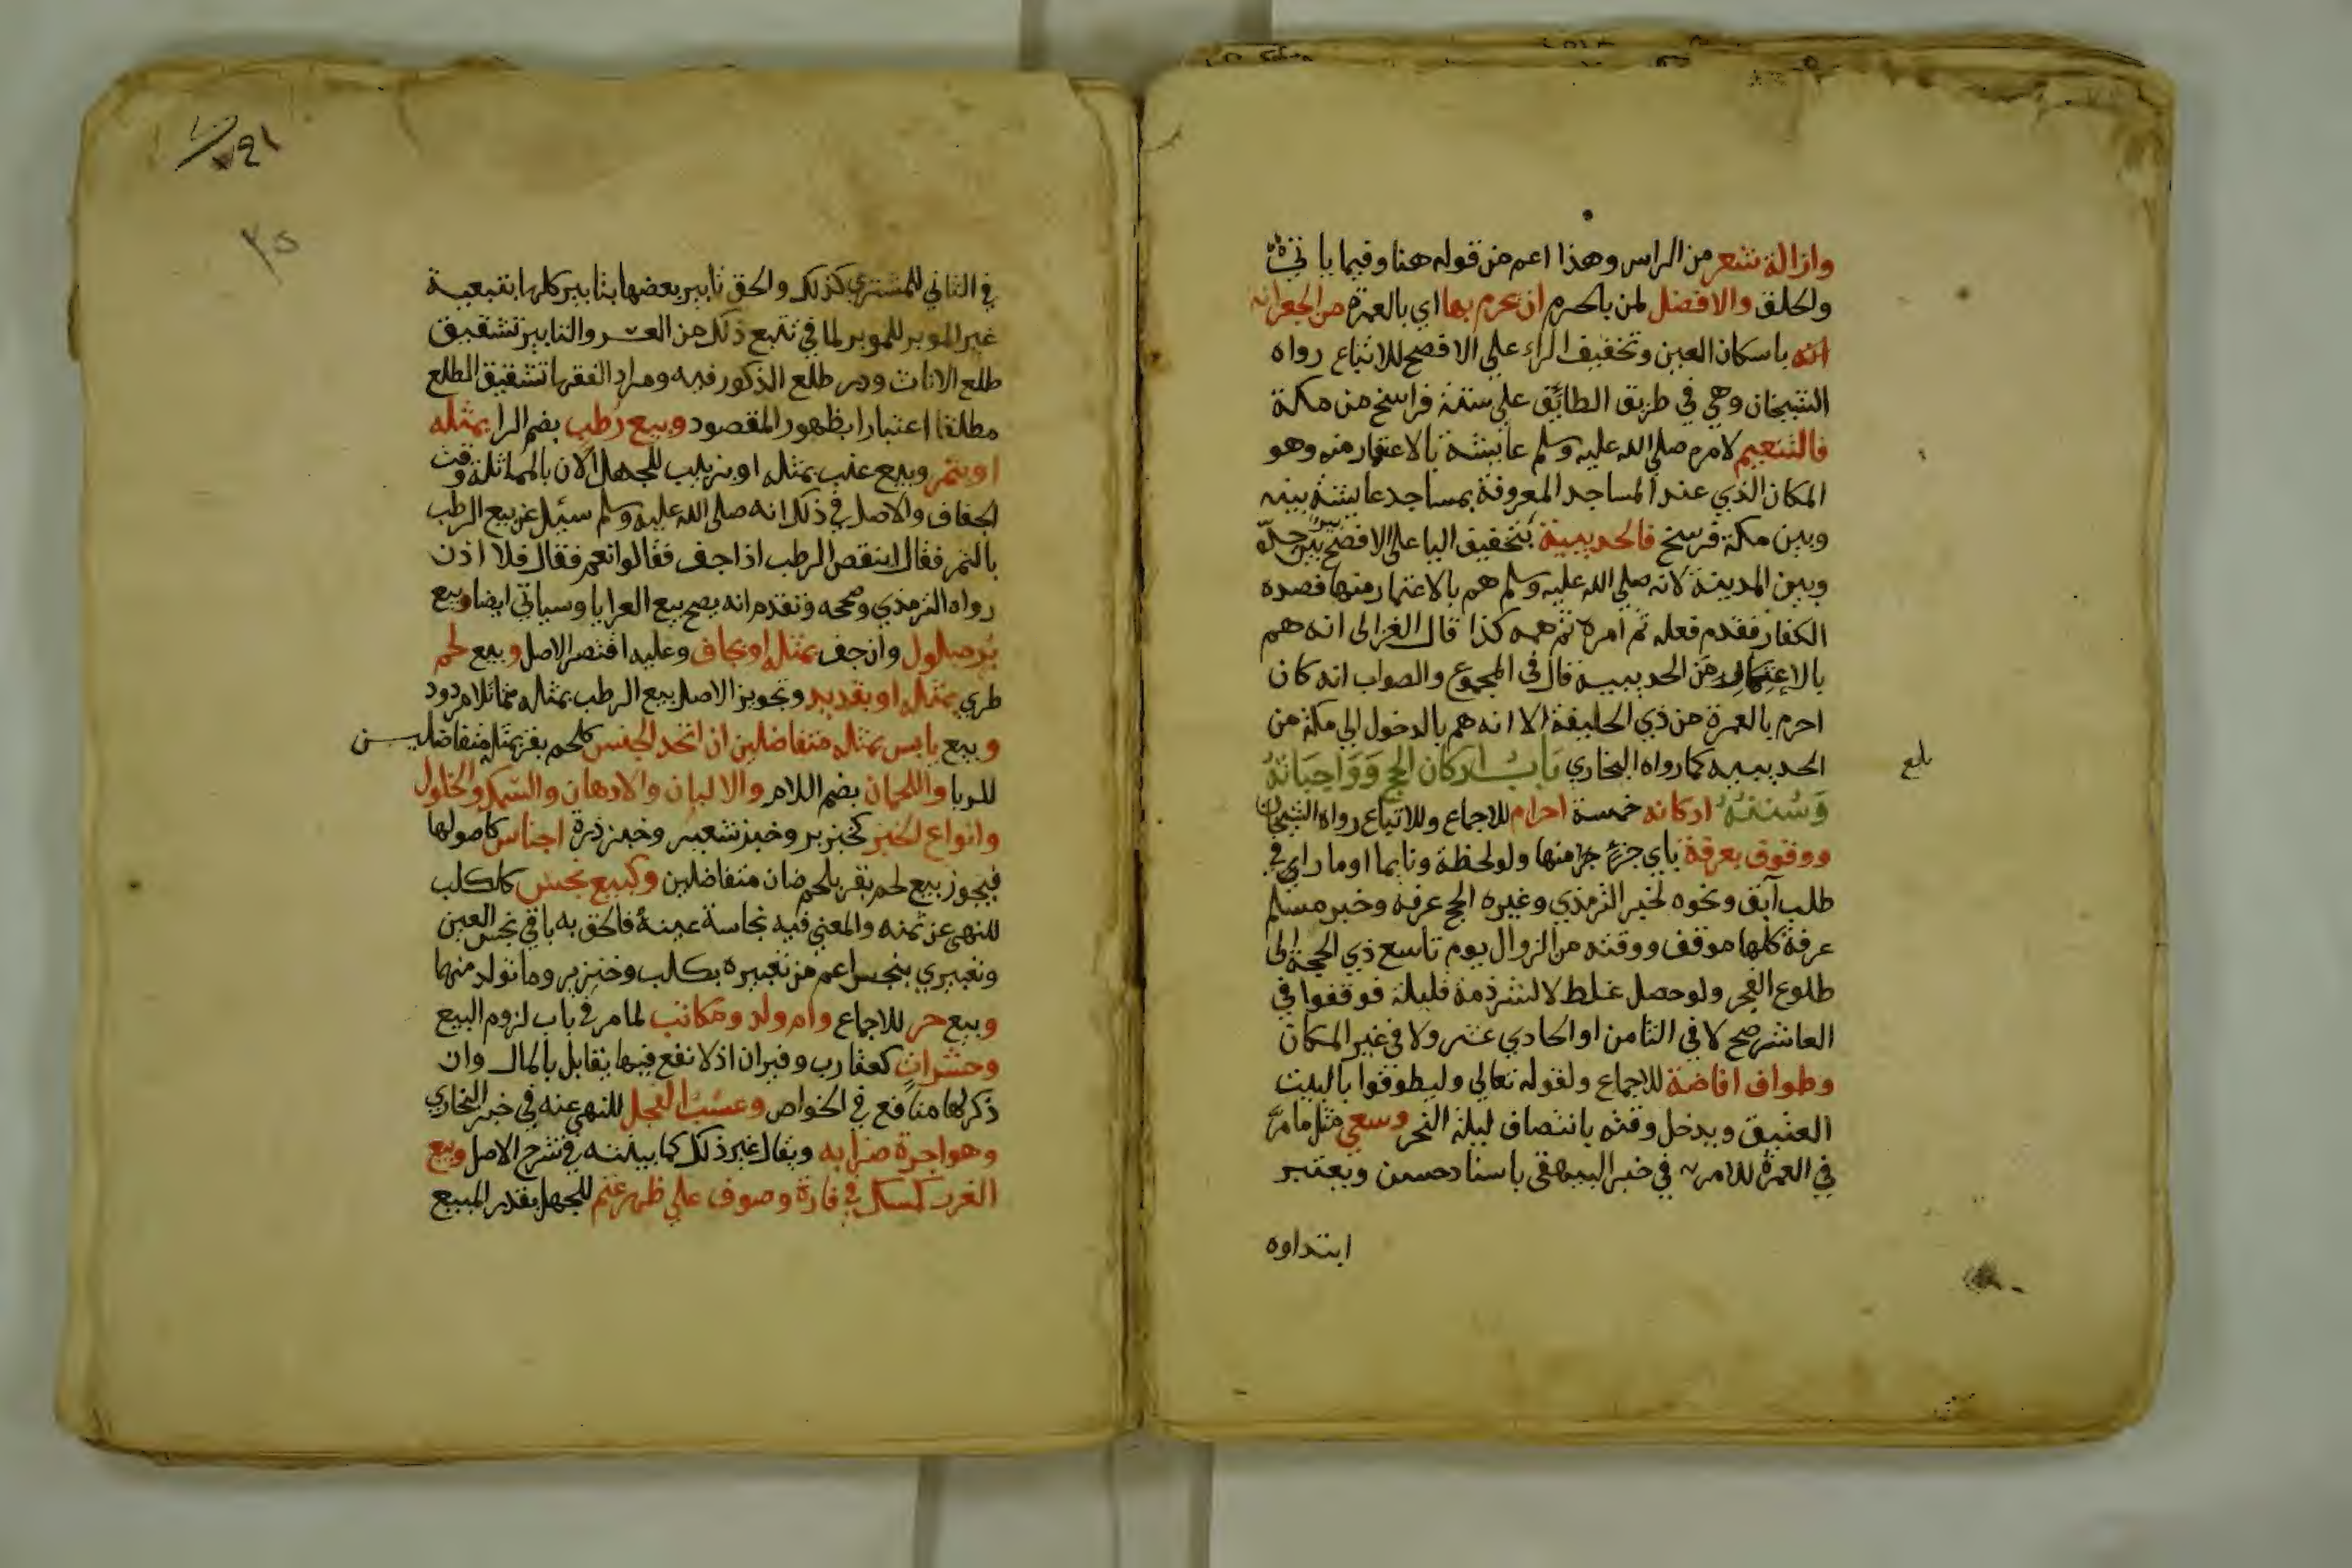 وازالة شعر من الراس وهذا اعم من قوله هنا وفيما ياتي
والحلق والافضل لمن بالحرم ان يحرم بها اي بالعمرة من الجعرانه
انه باسكان العين وتخفيف الراء علي الافصح للاتباع رواه
الشيخان وهي في طريق الطائف علي ستة فراسخ من مكة
فالتنعيم لامره صلي الله عليه وسلم عايشة بالاعتمار منه وهو
المكان الذي عند المساجد المعروفة بمساجد عايشة بينه
وبين مكة فرسخ فالحديبية بتخفيف اليا علي الافصح بير بين جدة
وبين المدينة لانه صلي الله عليه وسلم هم بالاعتمار منها فصده
الكفار فقدم فعله ثم امره ثم همه كذا قال الغزالي انه هم
بالاعتمار من الحديبية قال في المجموع والصواب انه كان
احرم بالعمرة من ذي الحليفة الا انه هم بالدخول الي مكة من
الحديبيه كما رواه البخاري باب اركان الحج وواجباته
بلغ
وسننه اركانه خمسة احرام للاجماع وللاتباع رواه الشيخان
ووقوف بعرفة باي جزء جزا منها ولو لحظة ونايما او مارا في
طلب آبق ونحوه لخبر الترمذي وغيره الحج عرفة وخبر مسلم
عرفة كلها موقف ووقته من الزوال يوم تاسع ذي الحجة الي
طلوع الفجر ولو حصل غلط لا لشرذمة قليلة فوقفوا في
العاشر صح لا في الثامن او الحادي عشر ولا في غير المكان
وطواف افاضة للاجماع ولقوله تعالي وليطوفوا بالبيت
العتيق ويدخل وقته بانتصاف ليلة النحر وسعي مثل ما مر
في العمرة للامر به في خبر البيهقي باسناد حسن ويعتبر
ابتداوه
٢٥
في الثاني للمشتري كذلك والحق تابير بعضها بتابير كلها بتبعية
غير الموبر للموبر لما في تتبع ذلك من العسر والتابير تشقيق
طلع الاناث وذر طلع الذكور فيه ومراد الفقها تشقيق الطلع
مطلقا اعتبارا بظهور المقصود وبيع رطب بضم الرا بمثله
او بتمر وبيع عنب بمثله او بزبيب للجهل الان بالمماثلة وقت
الجفاف والاصل في ذلك انه صلي الله عليه وسلم سيل عن بيع الرطب
بالتمر فقال اينقص الرطب اذا جف فقالوا نعم فقال فلا اذن
رواه الترمذي وصححه وتقدم انه يصح بيع العرايا وسياتي ايضا وبيع
بر مبلول وان جف بمثله او بجاف وعليه اقتصر الاصل وبيع لحم
طري بمثله او بقديد وتجويز الاصل بيع الرطب بمثله متماثلا مردود
وبيع يابس بمثله متفاضلين ان اتحد الجنس كلحم بقر بمثله متفاضلين
للربا واللحمان بضم اللام والالبان والادهان والسمك والخلول
وانواع الخبز كخبز بر وخبز شعير وخبز ذرة اجناس كاصولها
فيجوز بيع لحم بقر بلحم ضان متفاضلين وكبيع نجس كالكلب
للنهي عن ثمنه والمعني فيه نجاسة عينه فالحق به باقي نجس العين
وتعبيري بنجس اعم من تعبيره بكلب وخنزير وما تولد منهما
وبيع حر للاجماع وام ولد ومكاتب لما مر في باب لزوم البيع
وحشرات كعقارب وفيران اذ لا نفع فيها يقابل بالمال وان
ذكر لها منافع في الخواص وعسب الفحل للنهي عنه في خبر البخاري
وهو اجرة ضرابه ويقال غير ذلك كما بينته في شرح الاصل وبيع
الغرر كمسك في فارة وصوف علي ظهر غنم للجهل بقدر المبيع